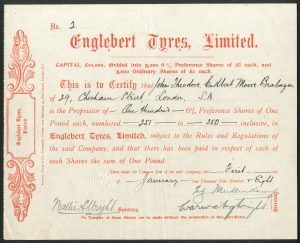 No. 2
Englebert Tyres, Limited.
CAPITAL £10,000, divided into 5,000 6% Preference Shares of £1 each, and
5,000 Ordinary Shares of £1 each.
This is to Certify that John Theodore Cuthbert Moore Brabazon
of 29, Chesham Street London, S.W.
is the Proprietor of One Hundred 6% Preference Shares of One
Pound each, numbered 251 to 350 inclusive, in
Englebert Tyres, Limited, subject to the Rules and Regulations of
the said Company, and that there has been paid in respect of each of
such Shares the sum of One Pound.
Given under the Common Seal of the said Company, the First day of
January One Thousand Nine Hundred & Eight
Secretary.
Directors
No Transfer of these Shares can be made without the production of this Certificate.
Englebert Tyres,
Limited.